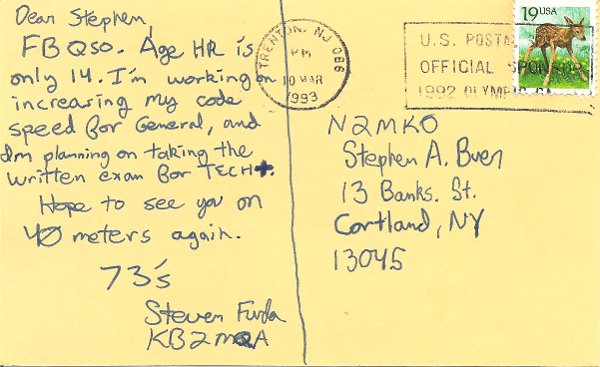 Dear Stephen,
FB QSO. Age HR is
only 14. I'm working on
increasing my code
speed for General, and
I'm planning on taking the
written exam for TECH+.
Hope to see you on
40 meters again.
73's
Steven
KB2MQA
TRENTON, NJ 086
PM
10 MAR
1993
U.S. POSTAL
OFFICIAL SPON
1992 OLYMPIC GA
19 USA
N2MKO
Stephen A. Buen
13 Banks. St.
Cortland, NY
13045